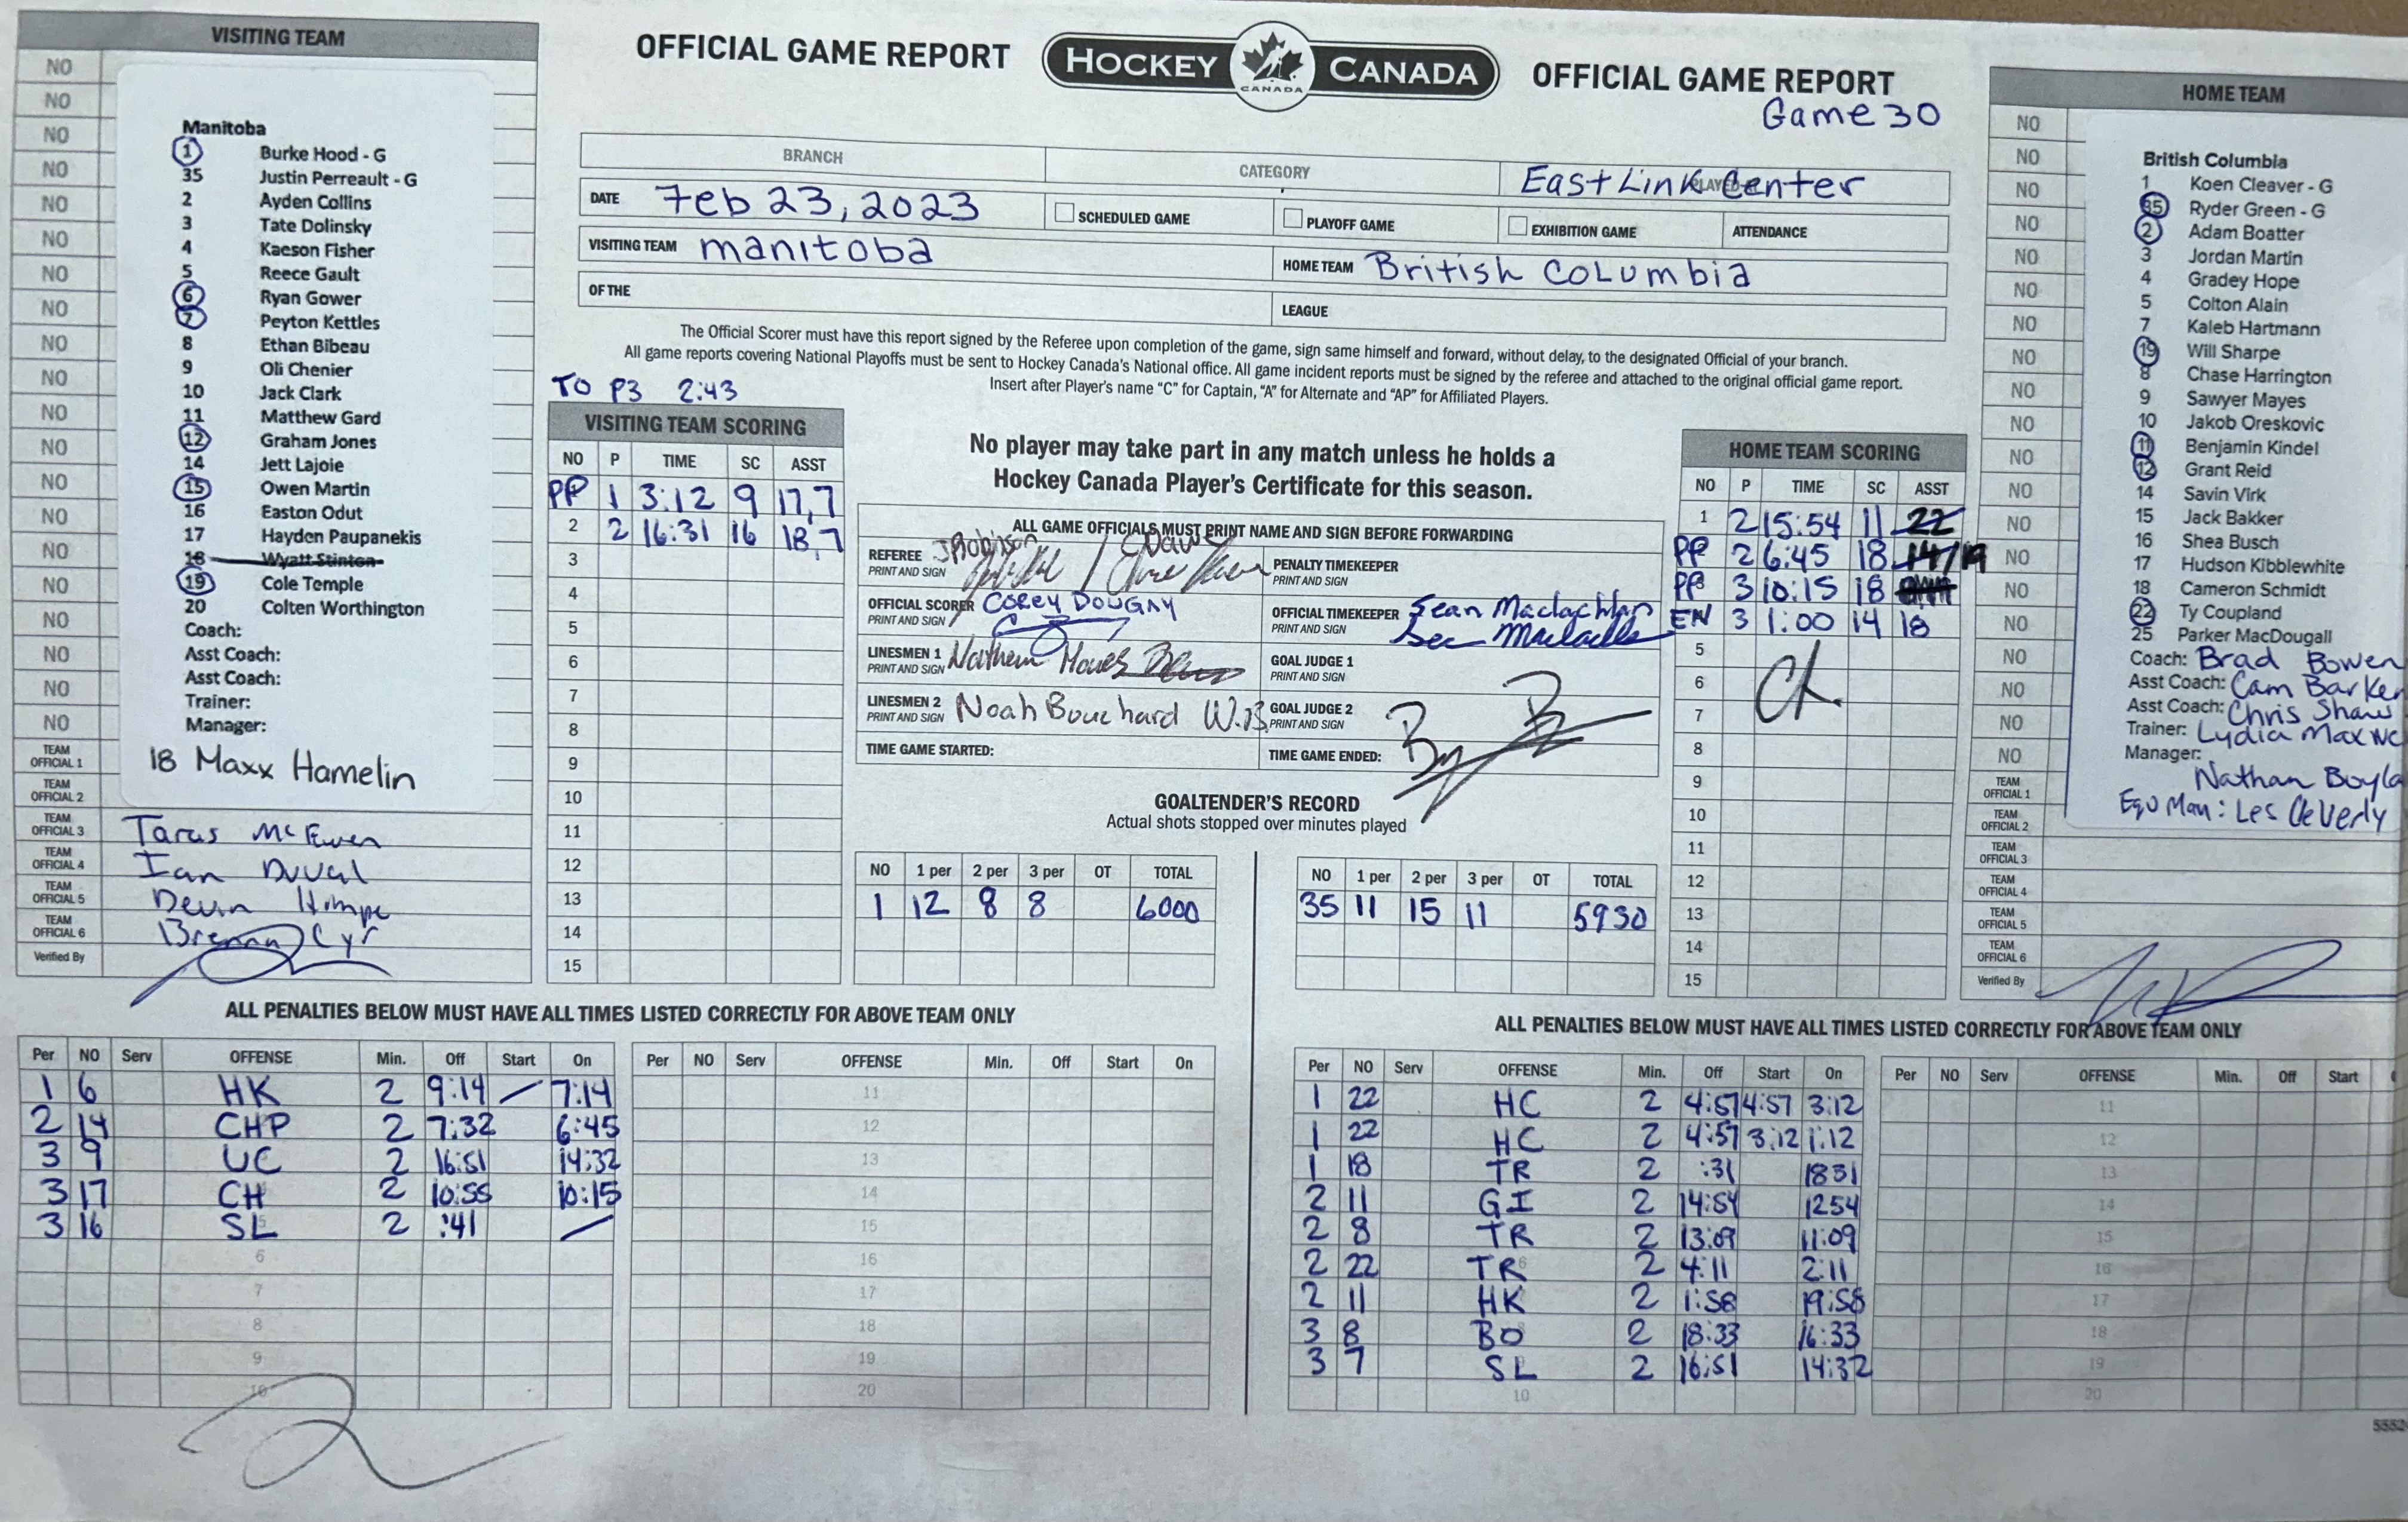 VISITING TEAM
NO
NO
NO
NO
NO
NO
NO
NO
NO
NO
NO
NO
NO
NO
NO
NO
NO
NO
NO
NO
Manitoba
1 Burke Hood - G
35 Justin Perreault - G
2 Ayden Collins
3 Tate Dolinsky
4 Kaeson Fisher
5 Reece Gault
6 Ryan Gower
7 Peyton Kettles
8 Ethan Bibeau
9 Oli Chenier
10 Jack Clark
11 Matthew Gard
12 Graham Jones
14 Jett Lajoie
15 Owen Martin
16 Easton Odut
17 Hayden Paupanekis
18 Wyatt Stinton
19 Cole Temple
20 Colten Worthington
Coach:
Asst Coach:
Asst Coach:
Trainer:
Manager:
18 Maxx Hamelin
TEAM OFFICIAL 1
TEAM OFFICIAL 2
TEAM OFFICIAL 3 Taras McEwen
TEAM OFFICIAL 4 Ian Duval
TEAM OFFICIAL 5 Devin
TEAM OFFICIAL 6 Cyr
Verified By
OFFICIAL GAME REPORT
HOCKEY CANADA
CANADA
OFFICIAL GAME REPORT
Game 30
BRANCH
CATEGORY
PLAYED
EastLink Center
DATE Feb 23, 2023
SCHEDULED GAME
PLAYOFF GAME
EXHIBITION GAME
ATTENDANCE
VISITING TEAM manitoba
HOME TEAM British COLUmbia
OF THE
LEAGUE
The Official Scorer must have this report signed by the Referee upon completion of the game, sign same himself and forward, without delay, to the designated Official of your branch.
All game reports covering National Playoffs must be sent to Hockey Canada's National office. All game incident reports must be signed by the referee and attached to the original official game report.
Insert after Player's name "C" for Captain, "A" for Alternate and "AP" for Affiliated Players.
TO P3 2:43
VISITING TEAM SCORING
NO P TIME SC ASST
PP 1 3:12 9 17,7
2 2 16:31 16 18,7
3
4
5
6
7
8
9
10
11
12
13
14
15
No player may take part in any match unless he holds a
Hockey Canada Player's Certificate for this season.
ALL GAME OFFICIALS MUST PRINT NAME AND SIGN BEFORE FORWARDING
REFEREE PRINT AND SIGN J Robinson
PENALTY TIMEKEEPER PRINT AND SIGN
OFFICIAL SCORER PRINT AND SIGN COREY DOUGAY
OFFICIAL TIMEKEEPER PRINT AND SIGN Sean Maclachlan
LINESMEN 1 PRINT AND SIGN
GOAL JUDGE 1 PRINT AND SIGN
LINESMEN 2 PRINT AND SIGN Noah Bouchard W.B
GOAL JUDGE 2 PRINT AND SIGN
TIME GAME STARTED:
TIME GAME ENDED:
GOALTENDER'S RECORD
Actual shots stopped over minutes played
NO 1 per 2 per 3 per OT TOTAL
1 12 8 8 6000
NO 1 per 2 per 3 per OT TOTAL
35 11 15 11 5930
HOME TEAM SCORING
NO P TIME SC ASST
1 2 15:54 11 22
PP 2 6:45 18 14/19
PP 3 10:15 18
EN 3 1:00 14 18
5
6
7
8
9
10
11
12
13
14
15
HOME TEAM
NO
NO
NO
NO
NO
NO
NO
NO
NO
NO
NO
NO
NO
NO
NO
NO
NO
NO
NO
NO
British Columbia
1 Koen Cleaver - G
35 Ryder Green - G
2 Adam Boatter
3 Jordan Martin
4 Gradey Hope
5 Colton Alain
7 Kaleb Hartmann
19 Will Sharpe
8 Chase Harrington
9 Sawyer Mayes
10 Jakob Oreskovic
11 Benjamin Kindel
12 Grant Reid
14 Savin Virk
15 Jack Bakker
16 Shea Busch
17 Hudson Kibblewhite
18 Cameron Schmidt
22 Ty Coupland
25 Parker MacDougall
Coach: Brad Bowen
Asst Coach: Cam Barker
Asst Coach: Chris Shaw
Trainer: Lydia
Manager:
Nathan Boyla
EQU Man: Les CleVerly
TEAM OFFICIAL 1
TEAM OFFICIAL 2
TEAM OFFICIAL 3
TEAM OFFICIAL 4
TEAM OFFICIAL 5
TEAM OFFICIAL 6
Verified By
ALL PENALTIES BELOW MUST HAVE ALL TIMES LISTED CORRECTLY FOR ABOVE TEAM ONLY
Per NO Serv OFFENSE Min. Off Start On
1 6 HK 2 9:14 7:14
2 14 CHP 2 7:32 6:45
3 9 UC 2 16:51 14:32
3 17 CH 2 10:55 10:15
3 16 SL 2 :41
6
7
8
9
10
Per NO Serv OFFENSE Min. Off Start On
11
12
13
14
15
16
17
18
19
20
ALL PENALTIES BELOW MUST HAVE ALL TIMES LISTED CORRECTLY FOR ABOVE TEAM ONLY
Per NO Serv OFFENSE Min. Off Start On
1 22 HC 2 4:57 4:57 3:12
1 22 HC 2 4:57 3:12 1:12
1 18 TR 2 :31 1831
2 11 GI 2 14:54 1254
2 8 TR 2 13:09 11:09
2 22 TR 2 4:11 2:11
2 11 HK 2 1:58 19:58
3 8 BO 2 18:33 16:33
3 7 SL 2 16:51 14:32
10
Per NO Serv OFFENSE Min. Off Start
11
12
13
14
15
16
17
18
19
20
5552